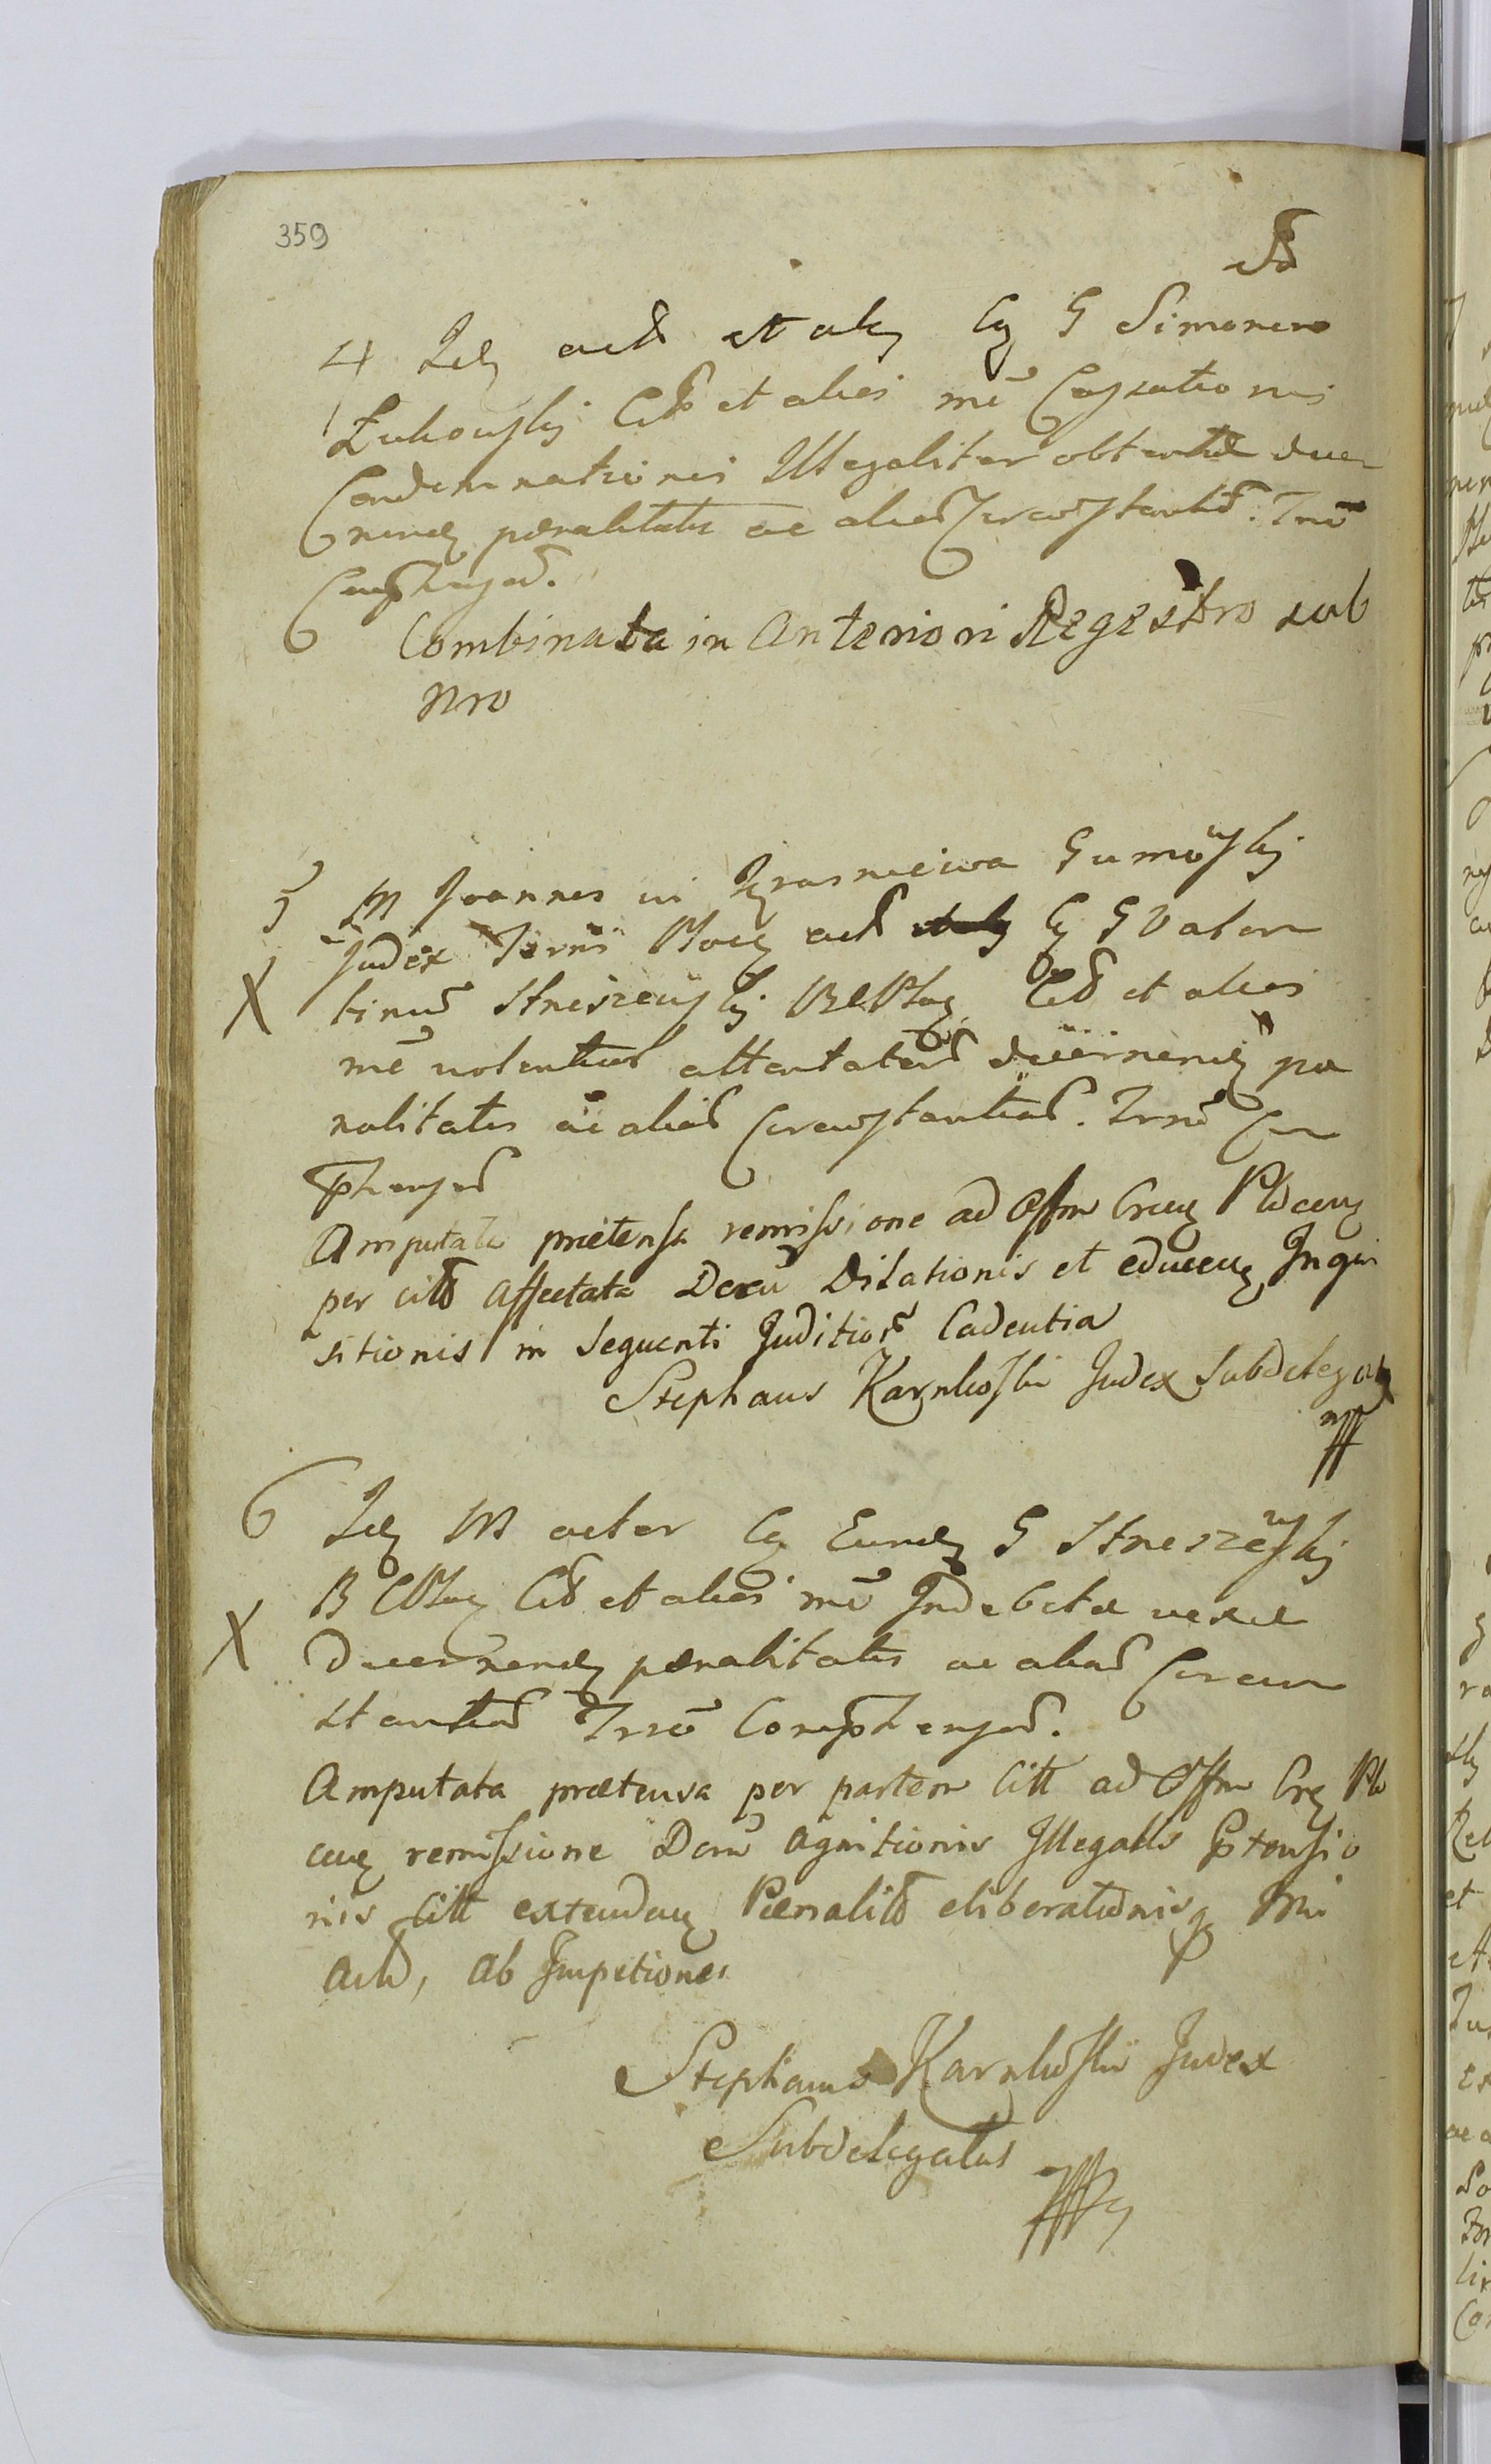 359
4 Id act et al Cz G Simonem
Łukowski Citt et alios me Cassationis
Condemnationis Illegaliter obtentae decer
nend paenalitatis ac alias Circumstant. Trno
Comphens.
Combinata in Anteriori Regestro sub
Nro
5 M Joannes in Krasniewa Gumowski
Judex Terris Ploc act Cz G Valen
X tinum Strzeszewski BCPloc Citt et alios
me violentias attentatas decernend pae
nalitatis ac alias Circumstantias. Trno Com
phens
Amputata praetensa remissione ad Offm Cren Plocen
per citt affectata Decm Dilationis et educen Inqui
sitionis in sequenti Juditior Cadentia
Stephanus Karnkoski Judex Subdelegat
mp
6 Id M actor Cz Eund G Strzeszewski
B CPloc Citt et alios me Indebitae vexae
X Decernend paenalitatis ac alias Circum
stantias Trno Comphens.
Amputata praetensa per partem Citt ad Offm Cre Plo
cen remissione Decm agnitionis Illegalis Ptensio
nis Citt extenden Paenalit eliberationisq Mci
Act, ab Impetione
Stephanus Karnkoski Judex
Subdelegatus
mp